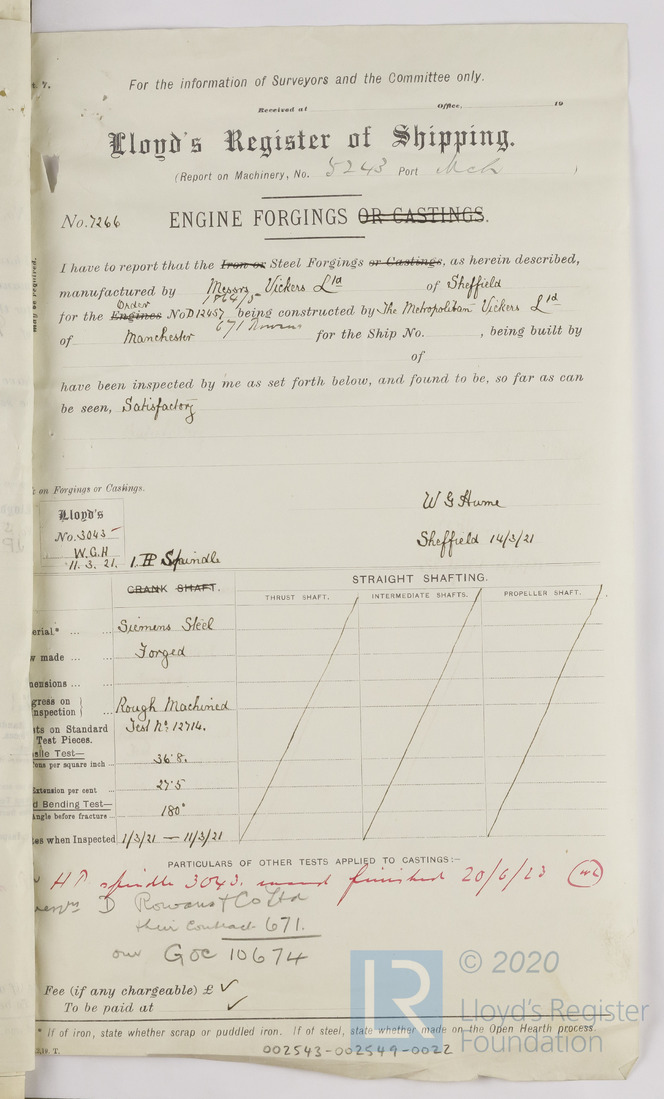 For the information of Surveyors and the Committee only.
Received at Office, 19
Lloyd's Register of Shipping.
(Report on Machinery, No. 5243 Port Mch )
No. 7266 ENGINE FORGINGS OR CASTINGS.
I have to report that the Iron or Steel Forgings or Castings, as herein described,
manufactured by Messrs Vickers Ltd of Sheffield
Order 1864/5
for the Engines No D12457 being constructed by The Metropolitan Vickers Ltd
671 Rowans
of Manchester for the Ship No. , being built by
of
have been inspected by me as set forth below, and found to be, so far as can
be seen, Satisfactory
may be required.
on Forgings or Castings.
Lloyd's
No. 3043
W.G.H
11.3.21.
W G Hume
Sheffield 14/3/21
1 HP Spindle
CRANK SHAFT. STRAIGHT SHAFTING.
THRUST SHAFT. INTERMEDIATE SHAFTS. PROPELLER SHAFT.
erial.* Siemens Steel
w made Forged
ensions
gress on
nspection Rough Machined
ts on Standard Test No. 12714.
Test Pieces.
sile Test—
ons per square inch 36.8.
Extension per cent 27.5
d Bending Test—
Angle before fracture 180°
es when Inspected 1/3/21 — 11/3/21
PARTICULARS OF OTHER TESTS APPLIED TO CASTINGS:—
HP spindle 3043. finished 20/6/23
D Rowans & Co Ltd
their contract 671.
our GOC 10674
Fee (if any chargeable) £ ✓
To be paid at ✓
* If of iron, state whether scrap or puddled iron. If of steel, state whether made on the Open Hearth process.
002543-002549-0022
LR
© 2020
Lloyd's Register
Foundation